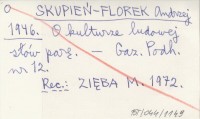 SKUPIEŃ-FLOREK Andrzej
1946. O kulturze ludowej
słów parę. — Gaz. Podh.
nr 12.
Rec.: ZIĘBA M. 1972.